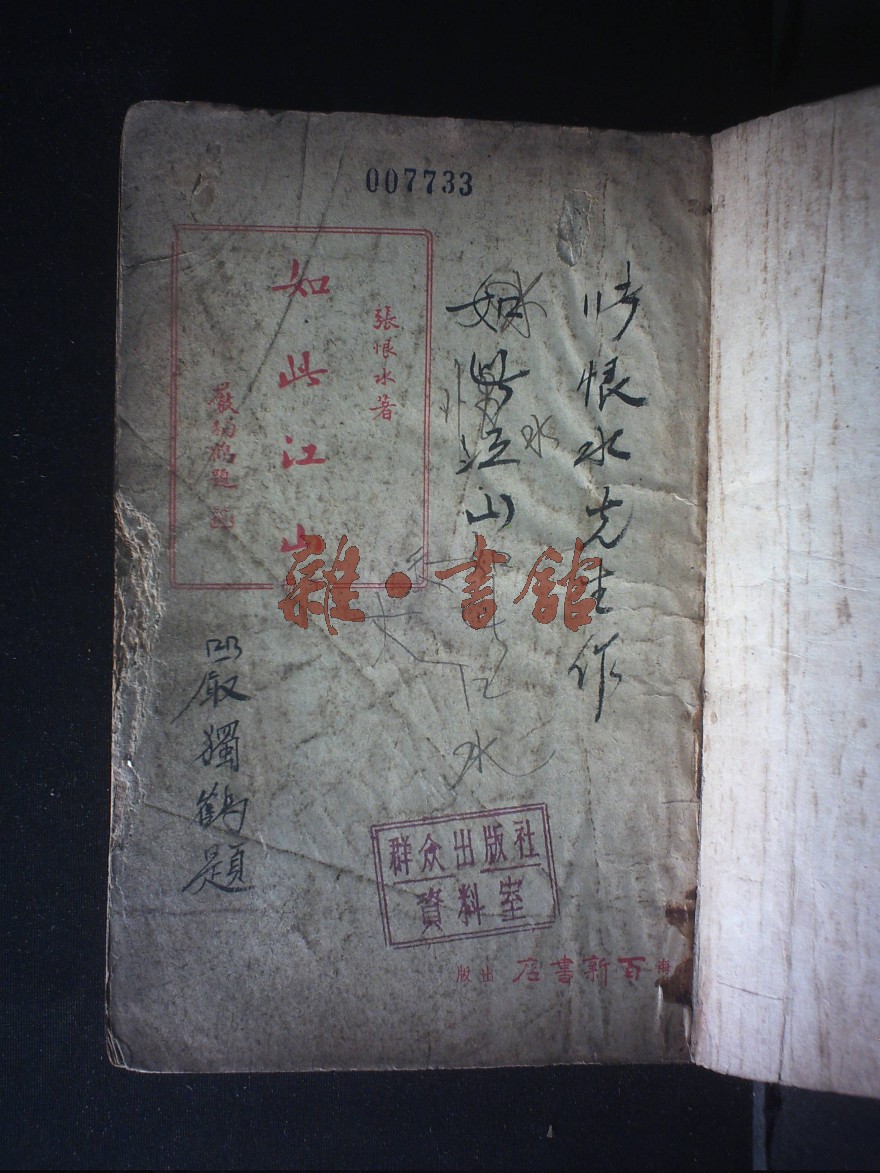 007733
張恨水著
如此江山
嚴獨鶴題
恨水先生作
如此江山
水
水
嚴獨鶴題
雜·書館
群众出版社
資料室
百新書店出版